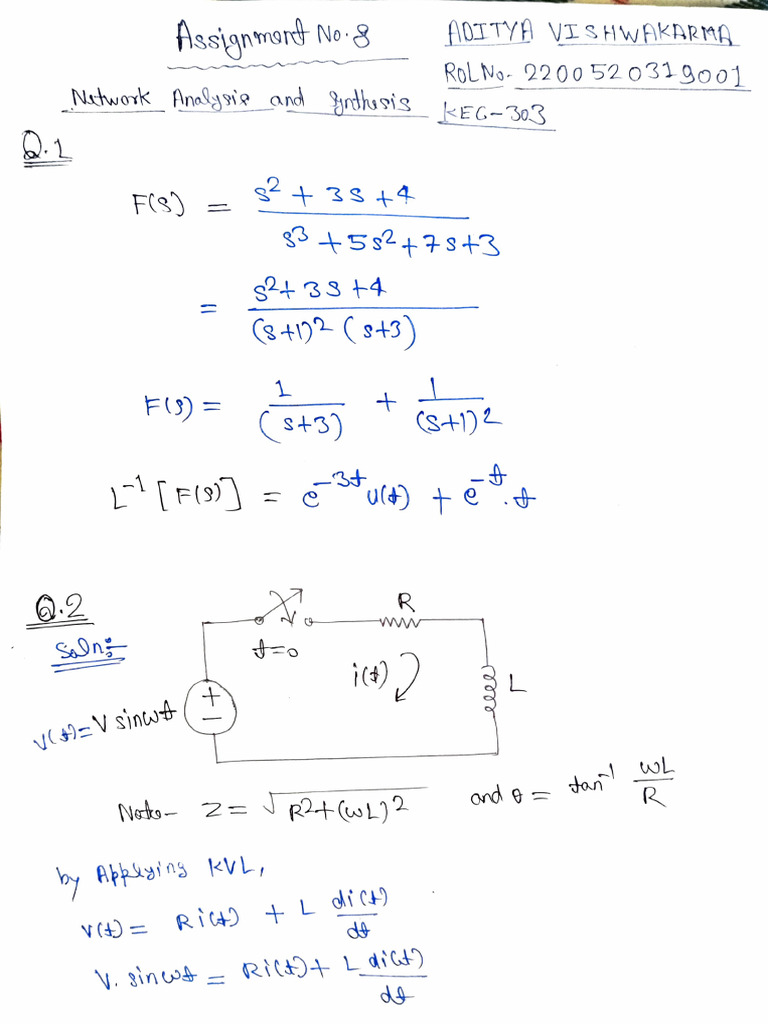 Assignment No. 8
ADITYA VISHWAKARMA
ROLNo. 2200520319001
Network Analysis and Synthesis
KEC-303
Q.1
F(s) = (s² + 3s + 4) / (s³ + 5s² + 7s + 3)
= (s² + 3s + 4) / ((s+1)² (s+3))
F(s) = 1/(s+3) + 1/(s+1)²
L⁻¹ [F(s)] = e^(-3t) u(t) + e^(-t) . t
Q.2
Soln:-
R
t=0
i(t)
L
+
−
v(t) = V sinωt
Note- Z = √(R² + (ωL)²) and θ = tan⁻¹ ωL/R
by Applying KVL,
v(t) = Ri(t) + L di(t)/dt
V. sinωt = Ri(t) + L di(t)/dt